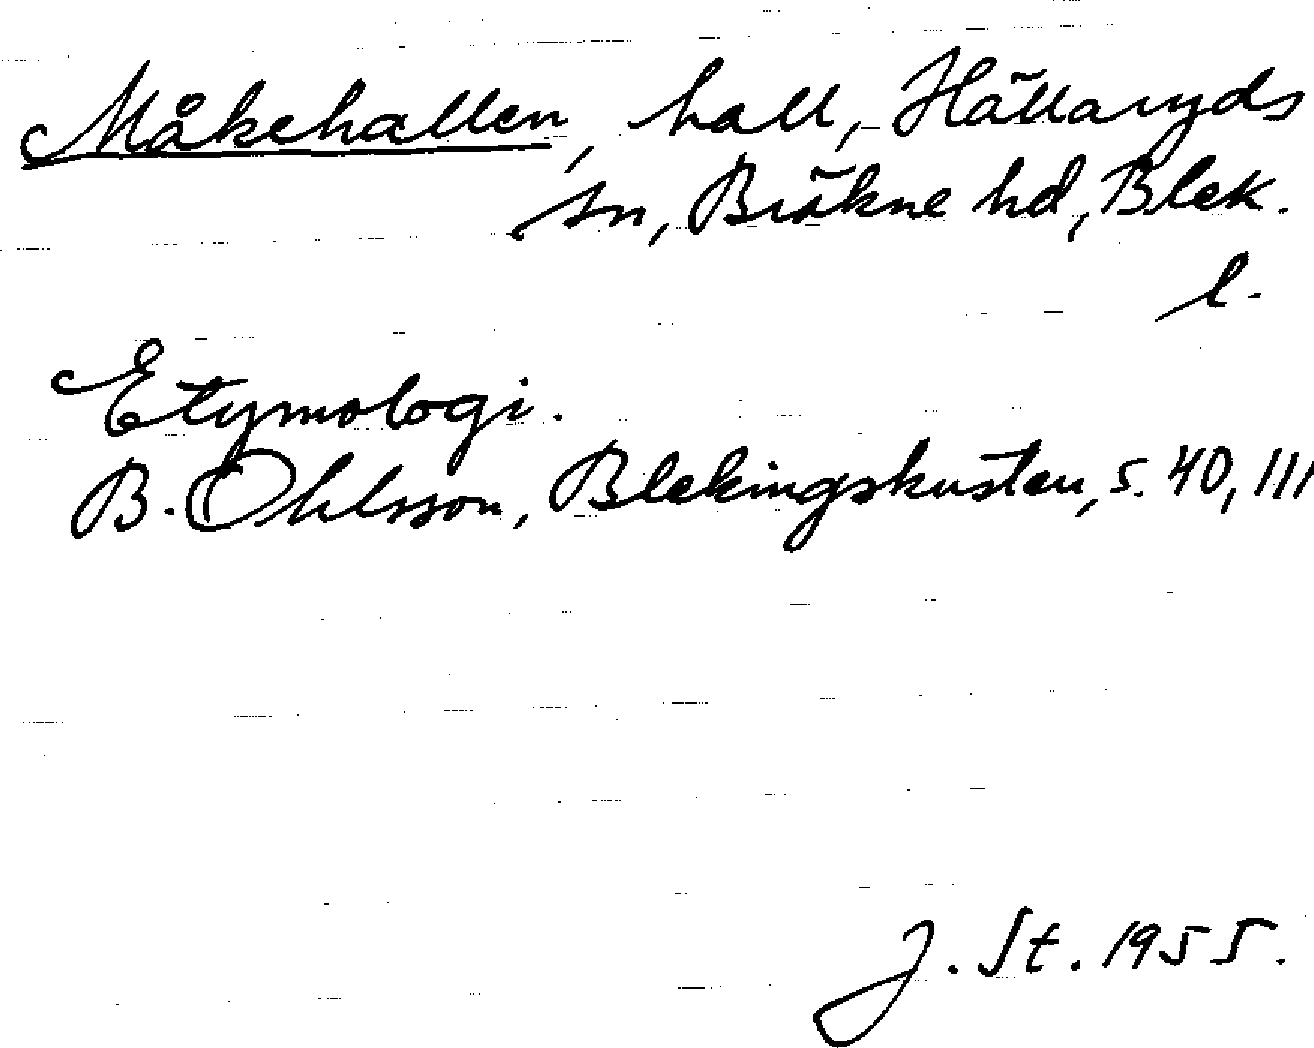 Måkehallen, hall, Hällaryds
sn, Bräkne hd, Blek.
l.
Etymologi.
B. Ohlsson, Blekingskusten, s. 40, 111
J. St. 1955.